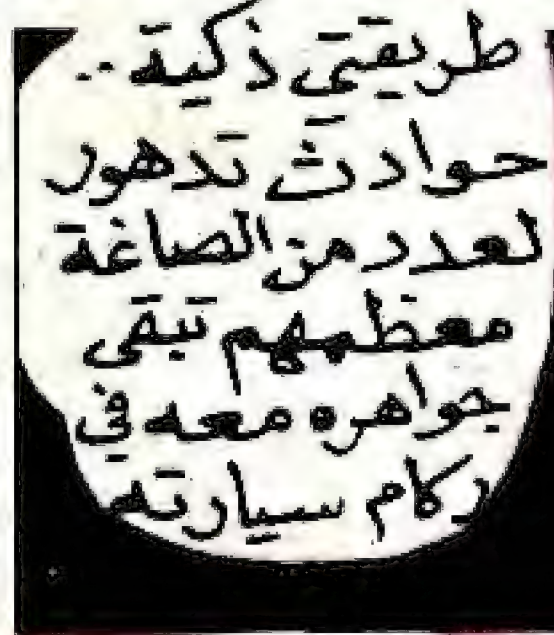 طريقتي ذكية ..
حوادث تدهور
لعدد من الصاغة
معظمهم تبقى
جواهره معه في
ركام سيارته